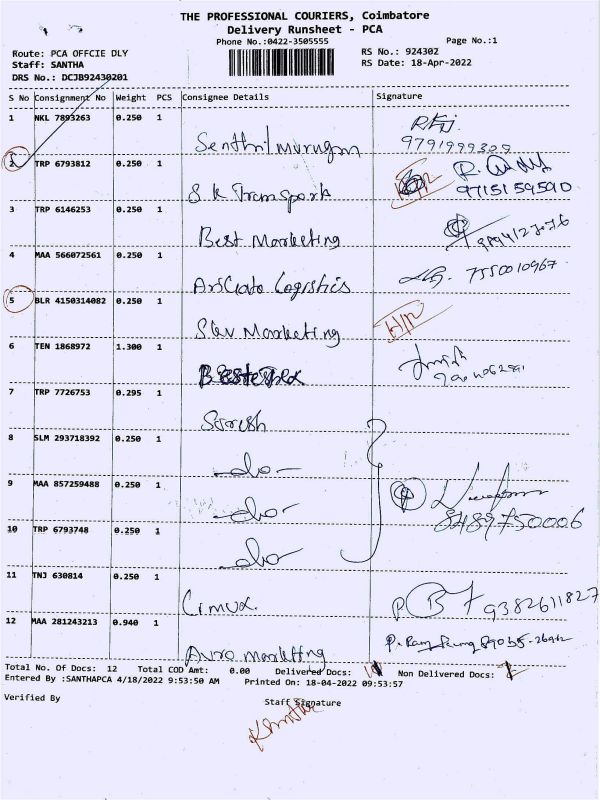 THE PROFESSIONAL COURIERS, Coimbatore
Delivery Runsheet - PCA
Phone No.:0422-3505555
Page No.:1
Route: PCA OFFCIE DLY
RS No.: 924302
Staff: SANTHA
RS Date: 18-Apr-2022
DRS No.: DCJB92430201
S No Consignment No Weight PCS Consignee Details Signature
1 NKL 7893263 0.250 1
Senthil murugan
9791999309
2 TRP 6793812 0.250 1
S.K Transport
9715159590
3 TRP 6146253 0.250 1
Best Marketing
4 MAA 566072561 0.250 1
Logistics
7550010967
5 BLR 4150314082 0.250 1
Marketing
6 TEN 1868972 1.300 1
7 TRP 7726753 0.295 1
Suresh
8 SLM 293718392 0.250 1
-do-
9 MAA 857259488 0.250 1
-do-
8489750006
10 TRP 6793748 0.250 1
-do-
11 TNJ 630814 0.250 1
9382611827
12 MAA 281243213 0.940 1
Auro marketing
Total No. Of Docs: 12 Total COD Amt: 0.00 Delivered Docs: Non Delivered Docs:
Entered By :SANTHAPCA 4/18/2022 9:53:50 AM Printed On: 18-04-2022 09:53:57
Verified By
Staff Signature